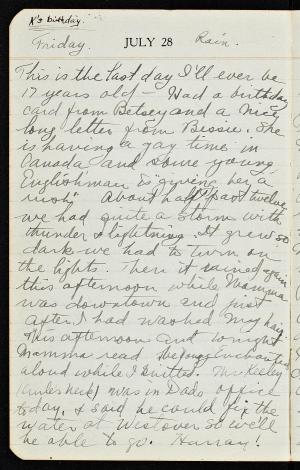 K's birthday.
Friday. JULY 28 Rain.
This is the last day I'll ever be
17 years old - Had a birthday
card from Betsey and a nice
long letter from Bessie. She
is having a gay time in
Canada and some young
Englishman is giving her a
rush! About half past twelve
we had quite a storm with
thunder & lightning. It grew so
dark we had to turn on
the lights. Then it rained again
this afternoon while Mamma
was downtown and just
after I had washed my hair.
This afternoon and tonight
Mamma read The Enchanted
aloud while I knitted. Mr.
was in Dad's office
today & said he could fix the
water at Westover so we'll
be able to go. Hurray!